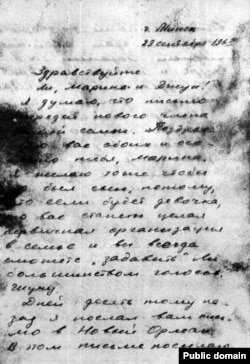 г. Минск
29 сентября 196
Здравствуйте
Ли, Марина и Джун!
Я думаю, что письмо
нового члена
семьи. Поздрав
вас обоих и осо
тебя, Марина.
Я желаю тоже чтобы
был сын, потому,
что если будет девочка,
то у вас станет целая
первичная организация
в семье и вы всегда
сможете "задавить" Ли
большинством голосов.
Дней десять тому на-
зад я послал вам пись
мо в Новый Орлеан.
В том письме послали
Public domain